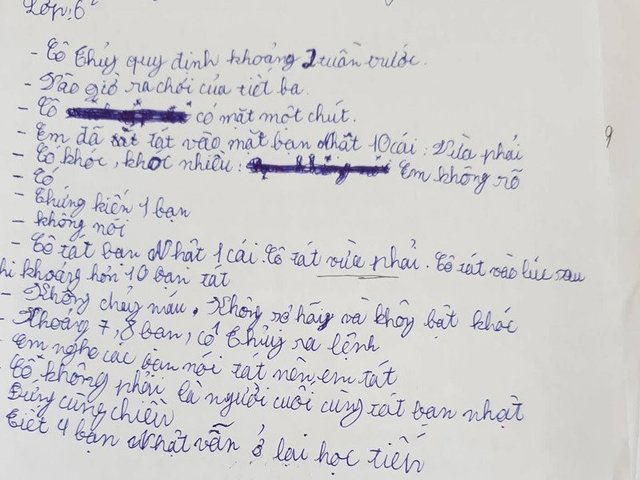 Lớp: 6
- Cô Thủy quy định khoảng 2 tuần trước.
- Vào giờ ra chơi của tiết ba
- Cô có mặt một chút.
- Em đã tát vào mặt bạn Nhật 10 cái: Vừa phải
- Có khóc, khóc nhiều: Em không rõ
- Có
- Chứng kiến 1 bạn
- không nói
- Cô tát bạn Nhật 1 cái. Cô tát vừa phải. Cô tát vào lúc sau
khi khoảng hơn 10 bạn tát
- Không chảy máu. Không sợ hãy và không bật khóc
- Khoảng 7, 8 bạn, cô Thủy ra lệnh
- Em nghe các bạn nói tát nên em tát
- Cô không phải là người cuối cùng tát bạn nhật
Đứng cùng chiều
Tiết 4 bạn Nhật vẫn ở lại học tiến
9